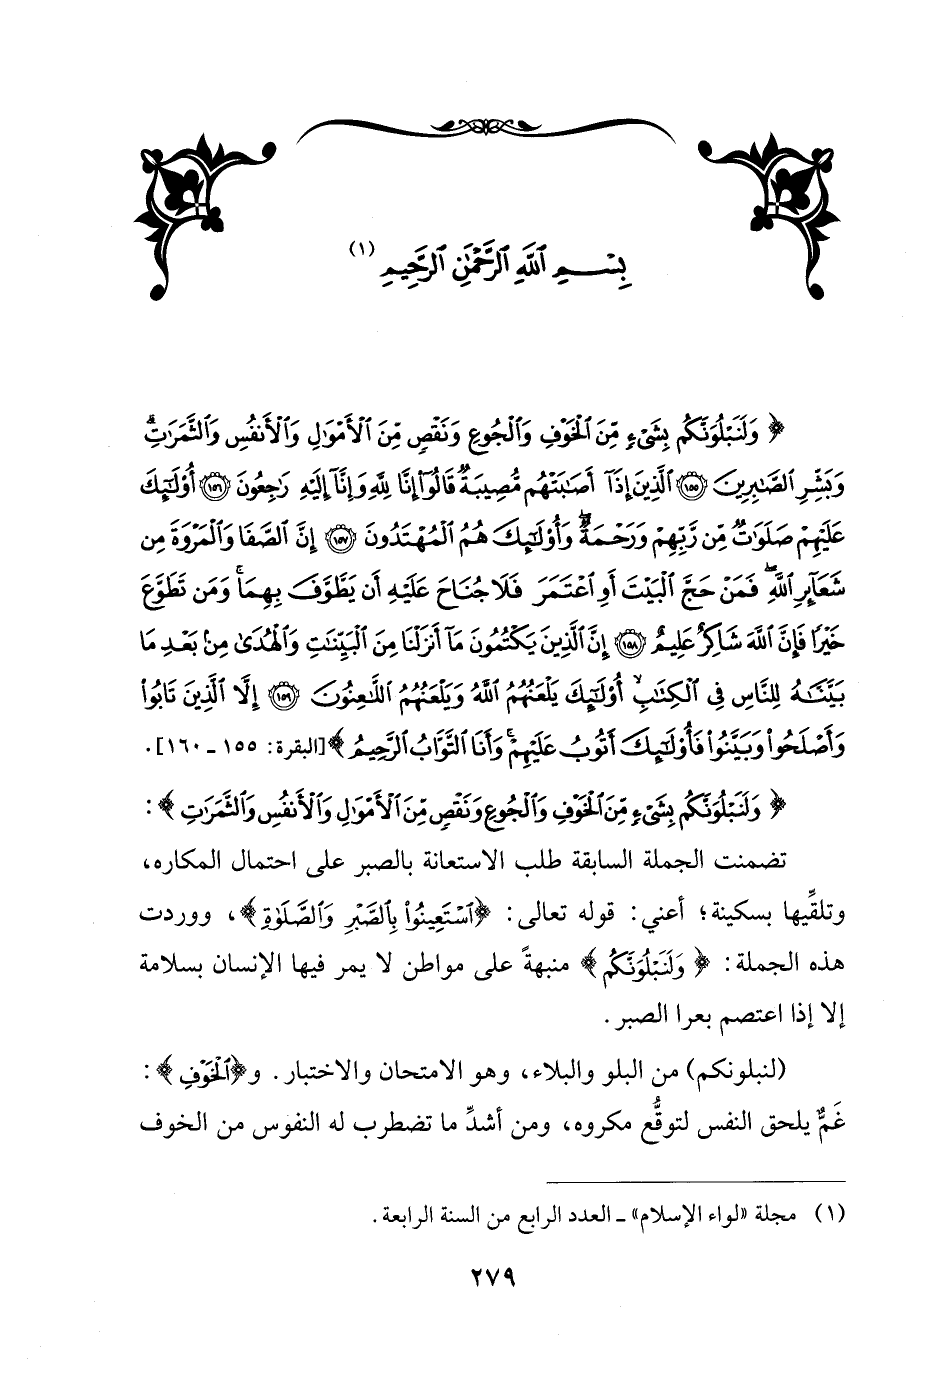 بِسْمِ ٱللَّهِ ٱلرَّحْمَٰنِ ٱلرَّحِيمِ (١)
﴿ وَلَنَبْلُوَنَّكُم بِشَىْءٍ مِّنَ ٱلْخَوْفِ وَٱلْجُوعِ وَنَقْصٍ مِّنَ ٱلْأَمْوَٰلِ وَٱلْأَنفُسِ وَٱلثَّمَرَٰتِ ۗ
وَبَشِّرِ ٱلصَّٰبِرِينَ ١٥٥ ٱلَّذِينَ إِذَآ أَصَٰبَتْهُم مُّصِيبَةٌ قَالُوٓا۟ إِنَّا لِلَّهِ وَإِنَّآ إِلَيْهِ رَٰجِعُونَ ١٥٦ أُو۟لَٰٓئِكَ
عَلَيْهِمْ صَلَوَٰتٌ مِّن رَّبِّهِمْ وَرَحْمَةٌ ۖ وَأُو۟لَٰٓئِكَ هُمُ ٱلْمُهْتَدُونَ ١٥٧ إِنَّ ٱلصَّفَا وَٱلْمَرْوَةَ مِن
شَعَآئِرِ ٱللَّهِ ۖ فَمَنْ حَجَّ ٱلْبَيْتَ أَوِ ٱعْتَمَرَ فَلَا جُنَاحَ عَلَيْهِ أَن يَطَّوَّفَ بِهِمَا ۚ وَمَن تَطَوَّعَ
خَيْرًا فَإِنَّ ٱللَّهَ شَاكِرٌ عَلِيمٌ ١٥٨ إِنَّ ٱلَّذِينَ يَكْتُمُونَ مَآ أَنزَلْنَا مِنَ ٱلْبَيِّنَٰتِ وَٱلْهُدَىٰ مِنۢ بَعْدِ مَا
بَيَّنَّٰهُ لِلنَّاسِ فِى ٱلْكِتَٰبِ ۙ أُو۟لَٰٓئِكَ يَلْعَنُهُمُ ٱللَّهُ وَيَلْعَنُهُمُ ٱللَّٰعِنُونَ ١٥٩ إِلَّا ٱلَّذِينَ تَابُوا۟
وَأَصْلَحُوا۟ وَبَيَّنُوا۟ فَأُو۟لَٰٓئِكَ أَتُوبُ عَلَيْهِمْ ۚ وَأَنَا ٱلتَّوَّابُ ٱلرَّحِيمُ ﴾ [البقرة: ١٥٥ ـ ١٦٠].
﴿ وَلَنَبْلُوَنَّكُم بِشَىْءٍ مِّنَ ٱلْخَوْفِ وَٱلْجُوعِ وَنَقْصٍ مِّنَ ٱلْأَمْوَٰلِ وَٱلْأَنفُسِ وَٱلثَّمَرَٰتِ ﴾:
تضمنت الجملة السابقة طلب الاستعانة بالصبر على احتمال المكاره،
وتلقِّيها بسكينة؛ أعني: قوله تعالى: ﴿ٱسْتَعِينُوا۟ بِٱلصَّبْرِ وَٱلصَّلَوٰةِ﴾، ووردت
هذه الجملة: ﴿ وَلَنَبْلُوَنَّكُم ﴾ منبهةً على مواطن لا يمر فيها الإنسان بسلامة
إلا إذا اعتصم بعرا الصبر.
(لنبلونكم) من البلو والبلاء، وهو الامتحان والاختبار. و﴿ٱلْخَوْفِ ﴾:
غَمٌّ يلحق النفس لتوقُّع مكروه، ومن أشدِّ ما تضطرب له النفوس من الخوف
(١) مجلة «لواء الإسلام» ـ العدد الرابع من السنة الرابعة.
٢٧٩